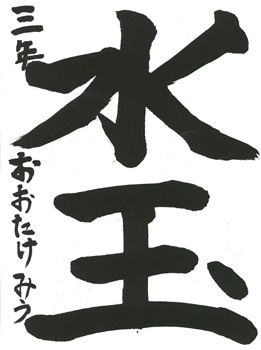 水玉
三年 おおたけみう